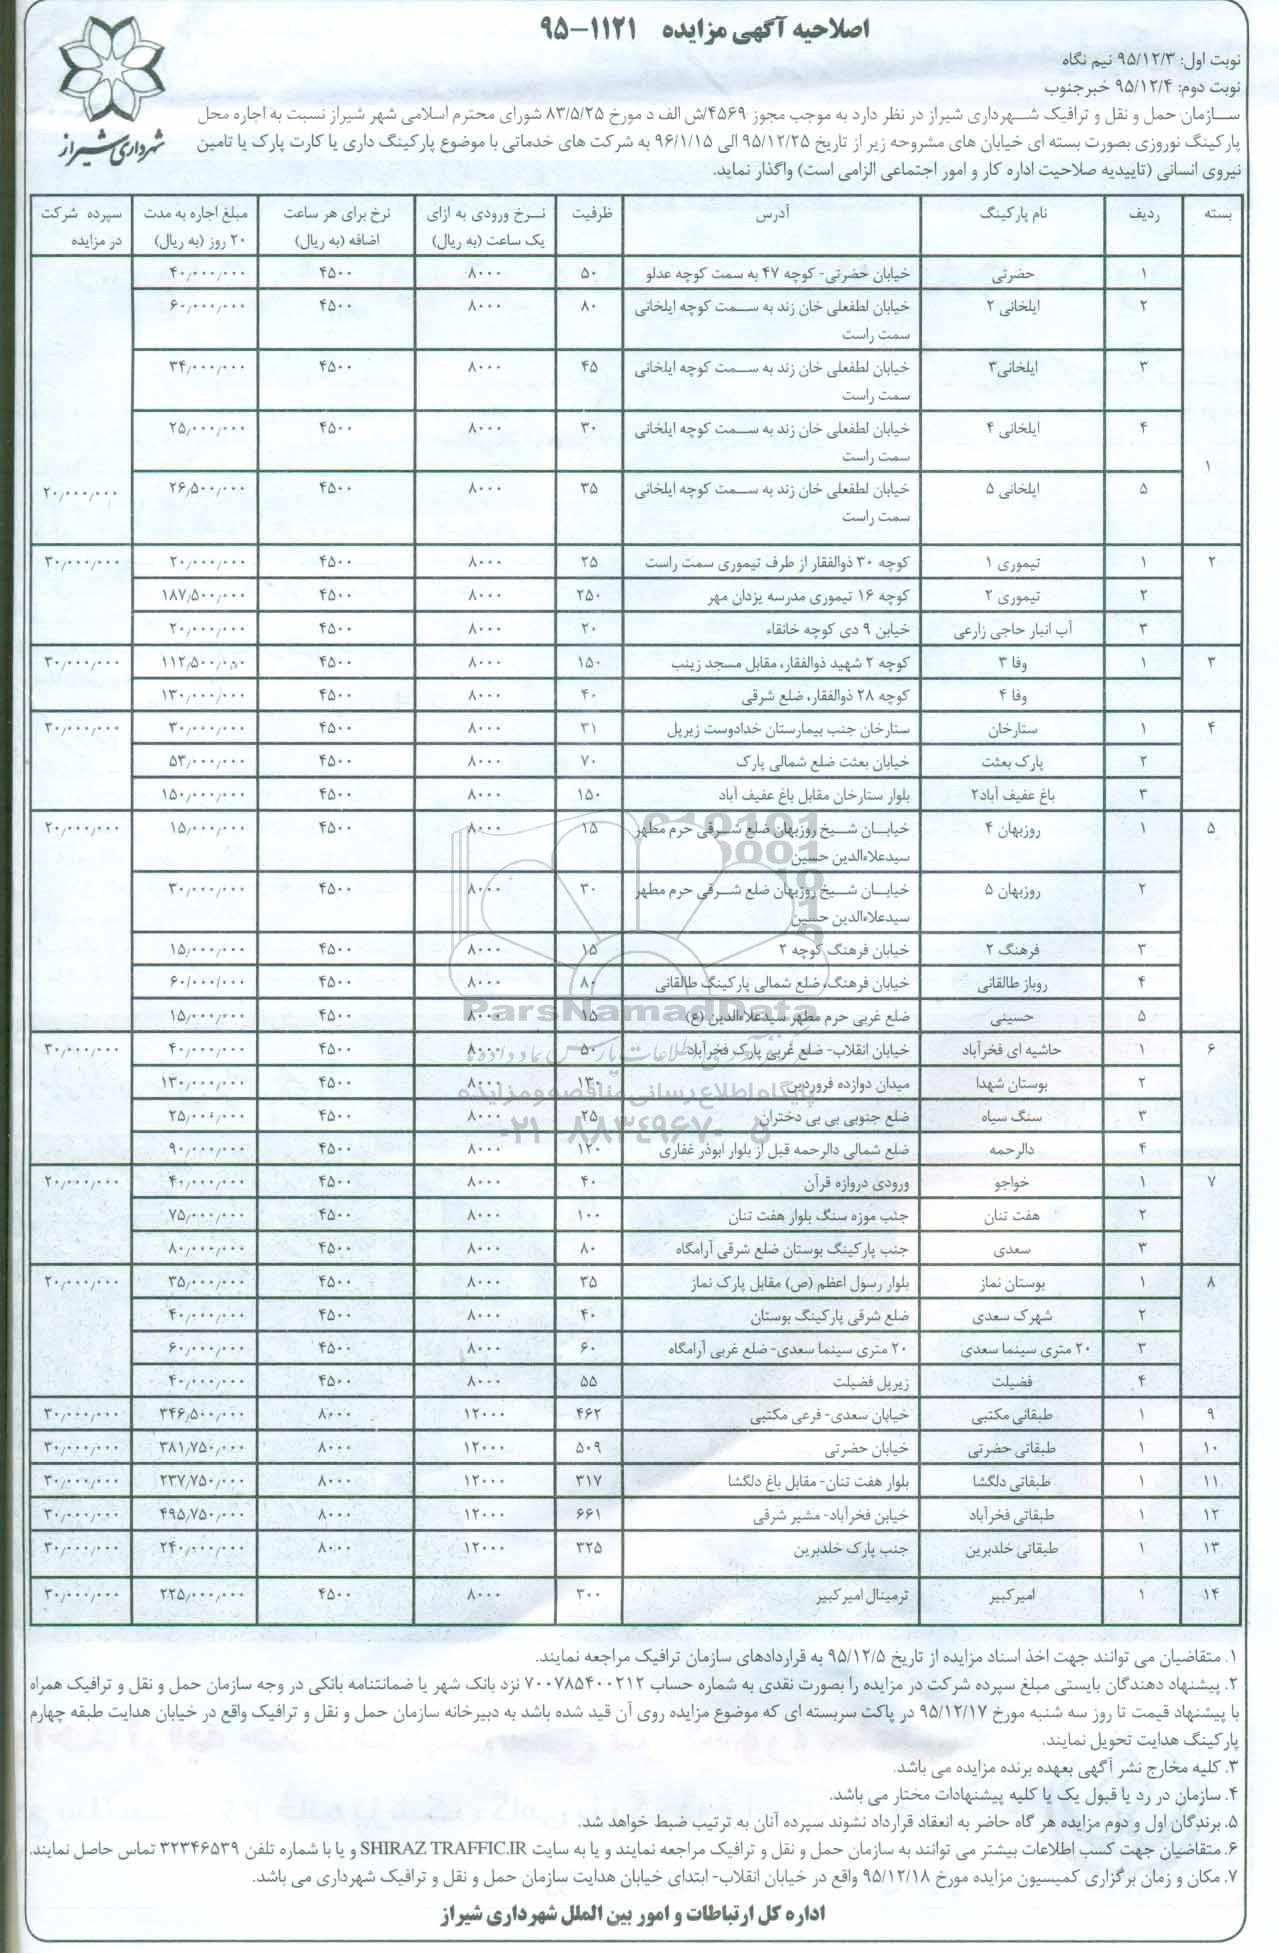 اصلاحیه آگهی مزایده ۱۱۲۱-۹۵
نوبت اول: ۹۵/۱۲/۳ نیم نگاه
نوبت دوم: ۹۵/۱۲/۴ خبرجنوب
شهرداری شیراز
سازمان حمل و نقل و ترافیک شهرداری شیراز در نظر دارد به موجب مجوز ۴۵۶۹/ش الف د مورخ ۸۳/۵/۲۵ شورای محترم اسلامی شهر شیراز نسبت به اجاره محل
پارکینگ نوروزی بصورت بسته ای خیابان های مشروحه زیر از تاریخ ۹۵/۱۲/۲۵ الی ۹۶/۱/۱۵ به شرکت های خدماتی با موضوع پارکینگ داری یا کارت پارک یا تامین
نیروی انسانی (تاییدیه صلاحیت اداره کار و امور اجتماعی الزامی است) واگذار نماید.
بسته ردیف نام پارکینگ آدرس ظرفیت نرخ ورودی به ازای یک ساعت (به ریال) نرخ برای هر ساعت اضافه (به ریال) مبلغ اجاره به مدت ۲۰ روز (به ریال) سپرده شرکت در مزایده
۱ حضرتی خیابان حضرتی- کوچه ۴۷ به سمت کوچه عدلو ۵۰ ۸۰۰۰ ۴۵۰۰ ۴۰٫۰۰۰٫۰۰۰
۲ ایلخانی ۲ خیابان لطفعلی خان زند به سمت کوچه ایلخانی سمت راست ۸۰ ۸۰۰۰ ۴۵۰۰ ۶۰٫۰۰۰٫۰۰۰
۳ ایلخانی۳ خیابان لطفعلی خان زند به سمت کوچه ایلخانی سمت راست ۴۵ ۸۰۰۰ ۴۵۰۰ ۳۴٫۰۰۰٫۰۰۰
۴ ایلخانی ۴ خیابان لطفعلی خان زند به سمت کوچه ایلخانی سمت راست ۳۰ ۸۰۰۰ ۴۵۰۰ ۲۵٫۰۰۰٫۰۰۰
۱ ۵ ایلخانی ۵ خیابان لطفعلی خان زند به سمت کوچه ایلخانی سمت راست ۳۵ ۸۰۰۰ ۴۵۰۰ ۲۶٫۵۰۰٫۰۰۰ ۲۰٫۰۰۰٫۰۰۰
۲ ۱ تیموری ۱ کوچه ۳۰ ذوالفقار از طرف تیموری سمت راست ۲۵ ۸۰۰۰ ۴۵۰۰ ۲۰٫۰۰۰٫۰۰۰ ۳۰٫۰۰۰٫۰۰۰
۲ تیموری ۲ کوچه ۱۶ تیموری مدرسه یزدان مهر ۲۵۰ ۸۰۰۰ ۴۵۰۰ ۱۸۷٫۵۰۰٫۰۰۰
۳ آب انبار حاجی زارعی خیابن ۹ دی کوچه خانقاء ۲۰ ۸۰۰۰ ۴۵۰۰ ۲۰٫۰۰۰٫۰۰۰
۳ ۱ وفا ۳ کوچه ۲ شهید ذوالفقار، مقابل مسجد زینب ۱۵۰ ۸۰۰۰ ۴۵۰۰ ۱۱۲٫۵۰۰٫۰۰۰ ۳۰٫۰۰۰٫۰۰۰
وفا ۴ کوچه ۲۸ ذوالفقار، ضلع شرقی ۴۰ ۸۰۰۰ ۴۵۰۰ ۱۳۰٫۰۰۰٫۰۰۰
۴ ۱ ستارخان ستارخان جنب بیمارستان خدادوست زیرپل ۳۱ ۸۰۰۰ ۴۵۰۰ ۳۰٫۰۰۰٫۰۰۰ ۳۰٫۰۰۰٫۰۰۰
۲ پارک بعثت خیابان بعثت ضلع شمالی پارک ۷۰ ۸۰۰۰ ۴۵۰۰ ۵۳٫۰۰۰٫۰۰۰
۳ باغ عفیف آباد۲ بلوار ستارخان مقابل باغ عفیف آباد ۱۵۰ ۸۰۰۰ ۴۵۰۰ ۱۵۰٫۰۰۰٫۰۰۰
۵ ۱ روزبهان ۴ خیابان شیخ روزبهان ضلع شرقی حرم مطهر سیدعلاءالدین حسین ۱۵ ۸۰۰۰ ۴۵۰۰ ۱۵٫۰۰۰٫۰۰۰ ۲۰٫۰۰۰٫۰۰۰
۲ روزبهان ۵ خیابان شیخ روزبهان ضلع شرقی حرم مطهر سیدعلاءالدین حسین ۳۰ ۸۰۰۰ ۴۵۰۰ ۳۰٫۰۰۰٫۰۰۰
۳ فرهنگ ۲ خیابان فرهنگ کوچه ۲ ۱۵ ۸۰۰۰ ۴۵۰۰ ۱۵٫۰۰۰٫۰۰۰
۴ روباز طالقانی خیابان فرهنگ، ضلع شمالی پارکینگ طالقانی ۸۰ ۸۰۰۰ ۴۵۰۰ ۶۰/۰۰۰/۰۰۰
۵ حسینی ضلع غربی حرم مطهر سیدعلاءالدین (ع) ۱۵ ۸۰۰۰ ۴۵۰۰ ۱۵٫۰۰۰٫۰۰۰
۶ ۱ حاشیه ای فخرآباد خیابان انقلاب- ضلع غربی پارک فخرآباد ۵۰ ۸۰۰۰ ۴۵۰۰ ۴۰٫۰۰۰٫۰۰۰ ۳۰٫۰۰۰٫۰۰۰
۲ بوستان شهدا میدان دوازده فروردین ۱۳۰ ۸۰۰۰ ۴۵۰۰ ۱۳۰٫۰۰۰٫۰۰۰
۳ سنگ سیاه ضلع جنوبی بی بی دختران ۲۵ ۸۰۰۰ ۴۵۰۰ ۲۵٫۰۰۰٫۰۰۰
۴ دالرحمه ضلع شمالی دالرحمه قبل از بلوار ابوذر غفاری ۱۲۰ ۸۰۰۰ ۴۵۰۰ ۹۰٫۰۰۰٫۰۰۰
۷ ۱ خواجو ورودی دروازه قرآن ۴۰ ۸۰۰۰ ۴۵۰۰ ۴۰٫۰۰۰٫۰۰۰ ۲۰٫۰۰۰٫۰۰۰
۲ هفت تنان جنب موزه سنگ بلوار هفت تنان ۱۰۰ ۸۰۰۰ ۴۵۰۰ ۷۵٫۰۰۰٫۰۰۰
۳ سعدی جنب پارکینگ بوستان ضلع شرقی آرامگاه ۸۰ ۸۰۰۰ ۴۵۰۰ ۸۰٫۰۰۰٫۰۰۰
۸ ۱ بوستان نماز بلوار رسول اعظم (ص) مقابل پارک نماز ۳۵ ۸۰۰۰ ۴۵۰۰ ۳۵٫۰۰۰٫۰۰۰ ۲۰٫۰۰۰٫۰۰۰
۲ شهرک سعدی ضلع شرقی پارکینگ بوستان ۴۰ ۸۰۰۰ ۴۵۰۰ ۴۰٫۰۰۰٫۰۰۰
۳ ۲۰ متری سینما سعدی ۲۰ متری سینما سعدی- ضلع غربی آرامگاه ۶۰ ۸۰۰۰ ۴۵۰۰ ۶۰٫۰۰۰٫۰۰۰
۴ فضیلت زیرپل فضیلت ۵۵ ۸۰۰۰ ۴۵۰۰ ۴۰٫۰۰۰٫۰۰۰
۹ ۱ طبقاتی مکتبی خیابان سعدی- فرعی مکتبی ۴۶۲ ۱۲۰۰۰ ۸۰۰۰ ۳۴۶٫۵۰۰٫۰۰۰ ۳۰٫۰۰۰٫۰۰۰
۱۰ ۱ طبقاتی حضرتی خیابان حضرتی ۵۰۹ ۱۲۰۰۰ ۸۰۰۰ ۳۸۱٫۷۵۰٫۰۰۰ ۳۰٫۰۰۰٫۰۰۰
۱۱ ۱ طبقاتی دلگشا بلوار هفت تنان- مقابل باغ دلگشا ۳۱۷ ۱۲۰۰۰ ۸۰۰۰ ۲۳۷٫۷۵۰٫۰۰۰ ۳۰٫۰۰۰٫۰۰۰
۱۲ ۱ طبقاتی فخرآباد خیابن فخرآباد- مشیر شرقی ۶۶۱ ۱۲۰۰۰ ۸۰۰۰ ۴۹۵٫۷۵۰٫۰۰۰ ۳۰٫۰۰۰٫۰۰۰
۱۳ ۱ طبقاتی خلدبرین جنب پارک خلدبرین ۳۲۵ ۱۲۰۰۰ ۸۰۰۰ ۲۴۰٫۰۰۰٫۰۰۰ ۳۰٫۰۰۰٫۰۰۰
۱۴ ۱ امیرکبیر ترمینال امیرکبیر ۳۰۰ ۸۰۰۰ ۴۵۰۰ ۲۲۵٫۰۰۰٫۰۰۰ ۳۰٫۰۰۰٫۰۰۰
ParsNamadData
پایگاه اطلاع رسانی مناقصه و مزایده
۰۲۱-۸۸۳۴۹۶۷۰-۵
۱. متقاضیان می توانند جهت اخذ اسناد مزایده از تاریخ ۹۵/۱۲/۵ به قراردادهای سازمان ترافیک مراجعه نمایند.
۲. پیشنهاد دهندگان بایستی مبلغ سپرده شرکت در مزایده را بصورت نقدی به شماره حساب ۷۰۰۷۸۵۴۰۰۲۱۲ نزد بانک شهر یا ضمانتنامه بانکی در وجه سازمان حمل و نقل و ترافیک همراه
با پیشنهاد قیمت تا روز سه شنبه مورخ ۹۵/۱۲/۱۷ در پاکت سربسته ای که موضوع مزایده روی آن قید شده باشد به دبیرخانه سازمان حمل و نقل و ترافیک واقع در خیابان هدایت طبقه چهارم
پارکینگ هدایت تحویل نمایند.
۳. کلیه مخارج نشر آگهی بعهده برنده مزایده می باشد.
۴. سازمان در رد یا قبول یک یا کلیه پیشنهادات مختار می باشد.
۵. برندگان اول و دوم مزایده هر گاه حاضر به انعقاد قرارداد نشوند سپرده آنان به ترتیب ضبط خواهد شد.
۶. متقاضیان جهت کسب اطلاعات بیشتر می توانند به سازمان حمل و نقل و ترافیک مراجعه نمایند و یا به سایت SHIRAZ TRAFFIC.IR و یا با شماره تلفن ۳۲۳۴۶۵۳۹ تماس حاصل نمایند.
۷. مکان و زمان برگزاری کمیسیون مزایده مورخ ۹۵/۱۲/۱۸ واقع در خیابان انقلاب- ابتدای خیابان هدایت سازمان حمل و نقل و ترافیک شهرداری می باشد.
اداره کل ارتباطات و امور بین الملل شهرداری شیراز